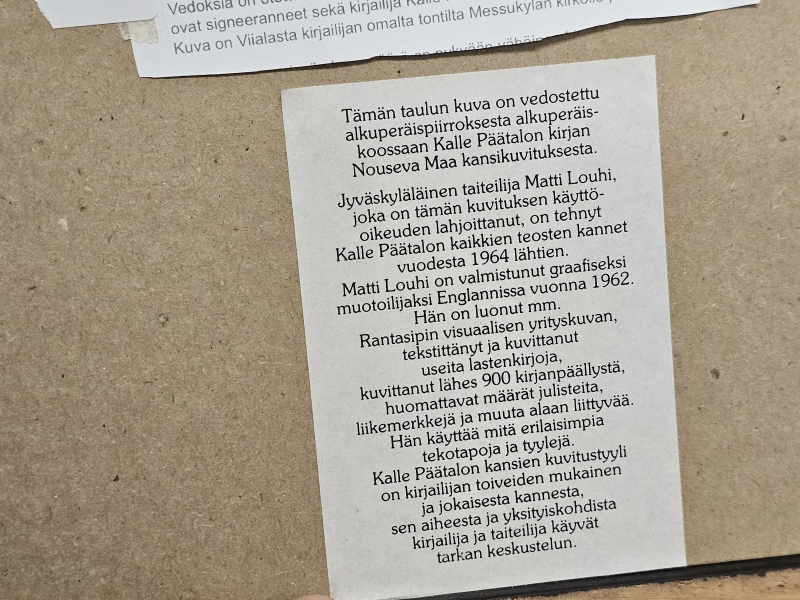 Vedoksia on
ovat signeeranneet sekä kirjailija Kalle
Kuva on Viialasta kirjailijan omalta tontilta Messukylän kirkolle
Tämän taulun kuva on vedostettu
alkuperäispiirroksesta alkuperäis-
koossaan Kalle Päätalon kirjan
Nouseva Maa kansikuvituksesta.
Jyväskyläläinen taiteilija Matti Louhi,
joka on tämän kuvituksen käyttö-
oikeuden lahjoittanut, on tehnyt
Kalle Päätalon kaikkien teosten kannet
vuodesta 1964 lähtien.
Matti Louhi on valmistunut graafiseksi
muotoilijaksi Englannissa vuonna 1962.
Hän on luonut mm.
Rantasipin visuaalisen yrityskuvan,
tekstittänyt ja kuvittanut
useita lastenkirjoja,
kuvittanut lähes 900 kirjanpäällystä,
huomattavat määrät julisteita,
liikemerkkejä ja muuta alaan liittyvää.
Hän käyttää mitä erilaisimpia
tekotapoja ja tyylejä.
Kalle Päätalon kansien kuvitustyyli
on kirjailijan toiveiden mukainen
ja jokaisesta kannesta,
sen aiheesta ja yksityiskohdista
kirjailija ja taiteilija käyvät
tarkan keskustelun.